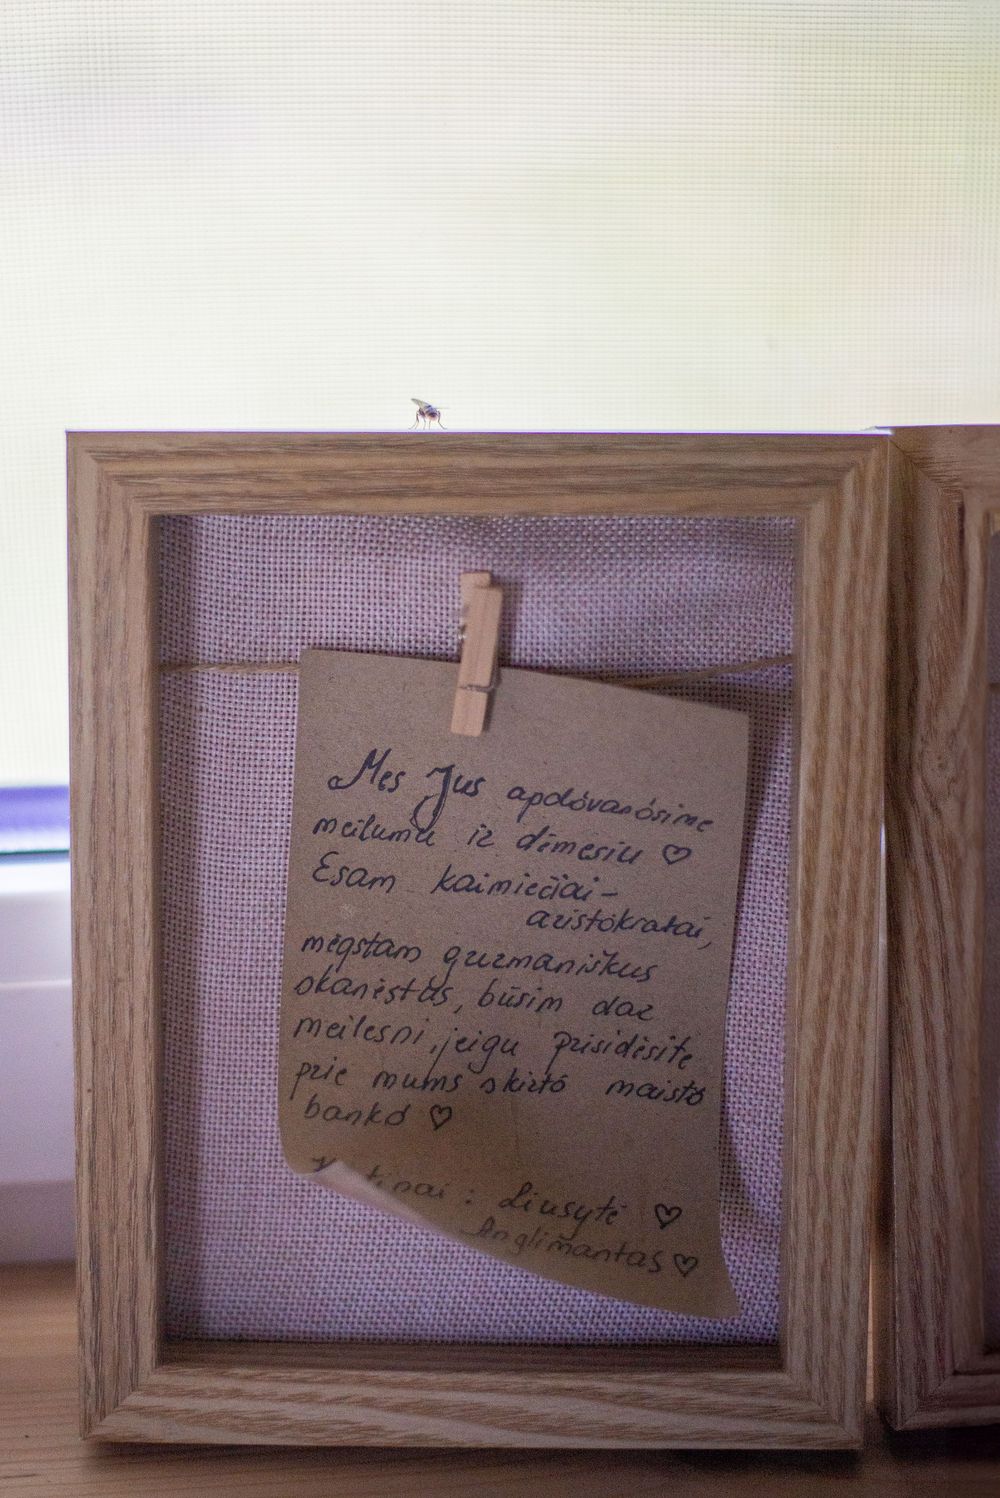 Mes Jus apdovanosime
meilumu ir dėmesiu ♡
Esam kaimiečiai-
aristokratai,
mėgstam gurmaniškus
skanėstus, būsim dar
meilesni, jeigu prisidėsite
prie mums skirto maisto
banko ♡
: Liusytė ♡
Anglimantas ♡